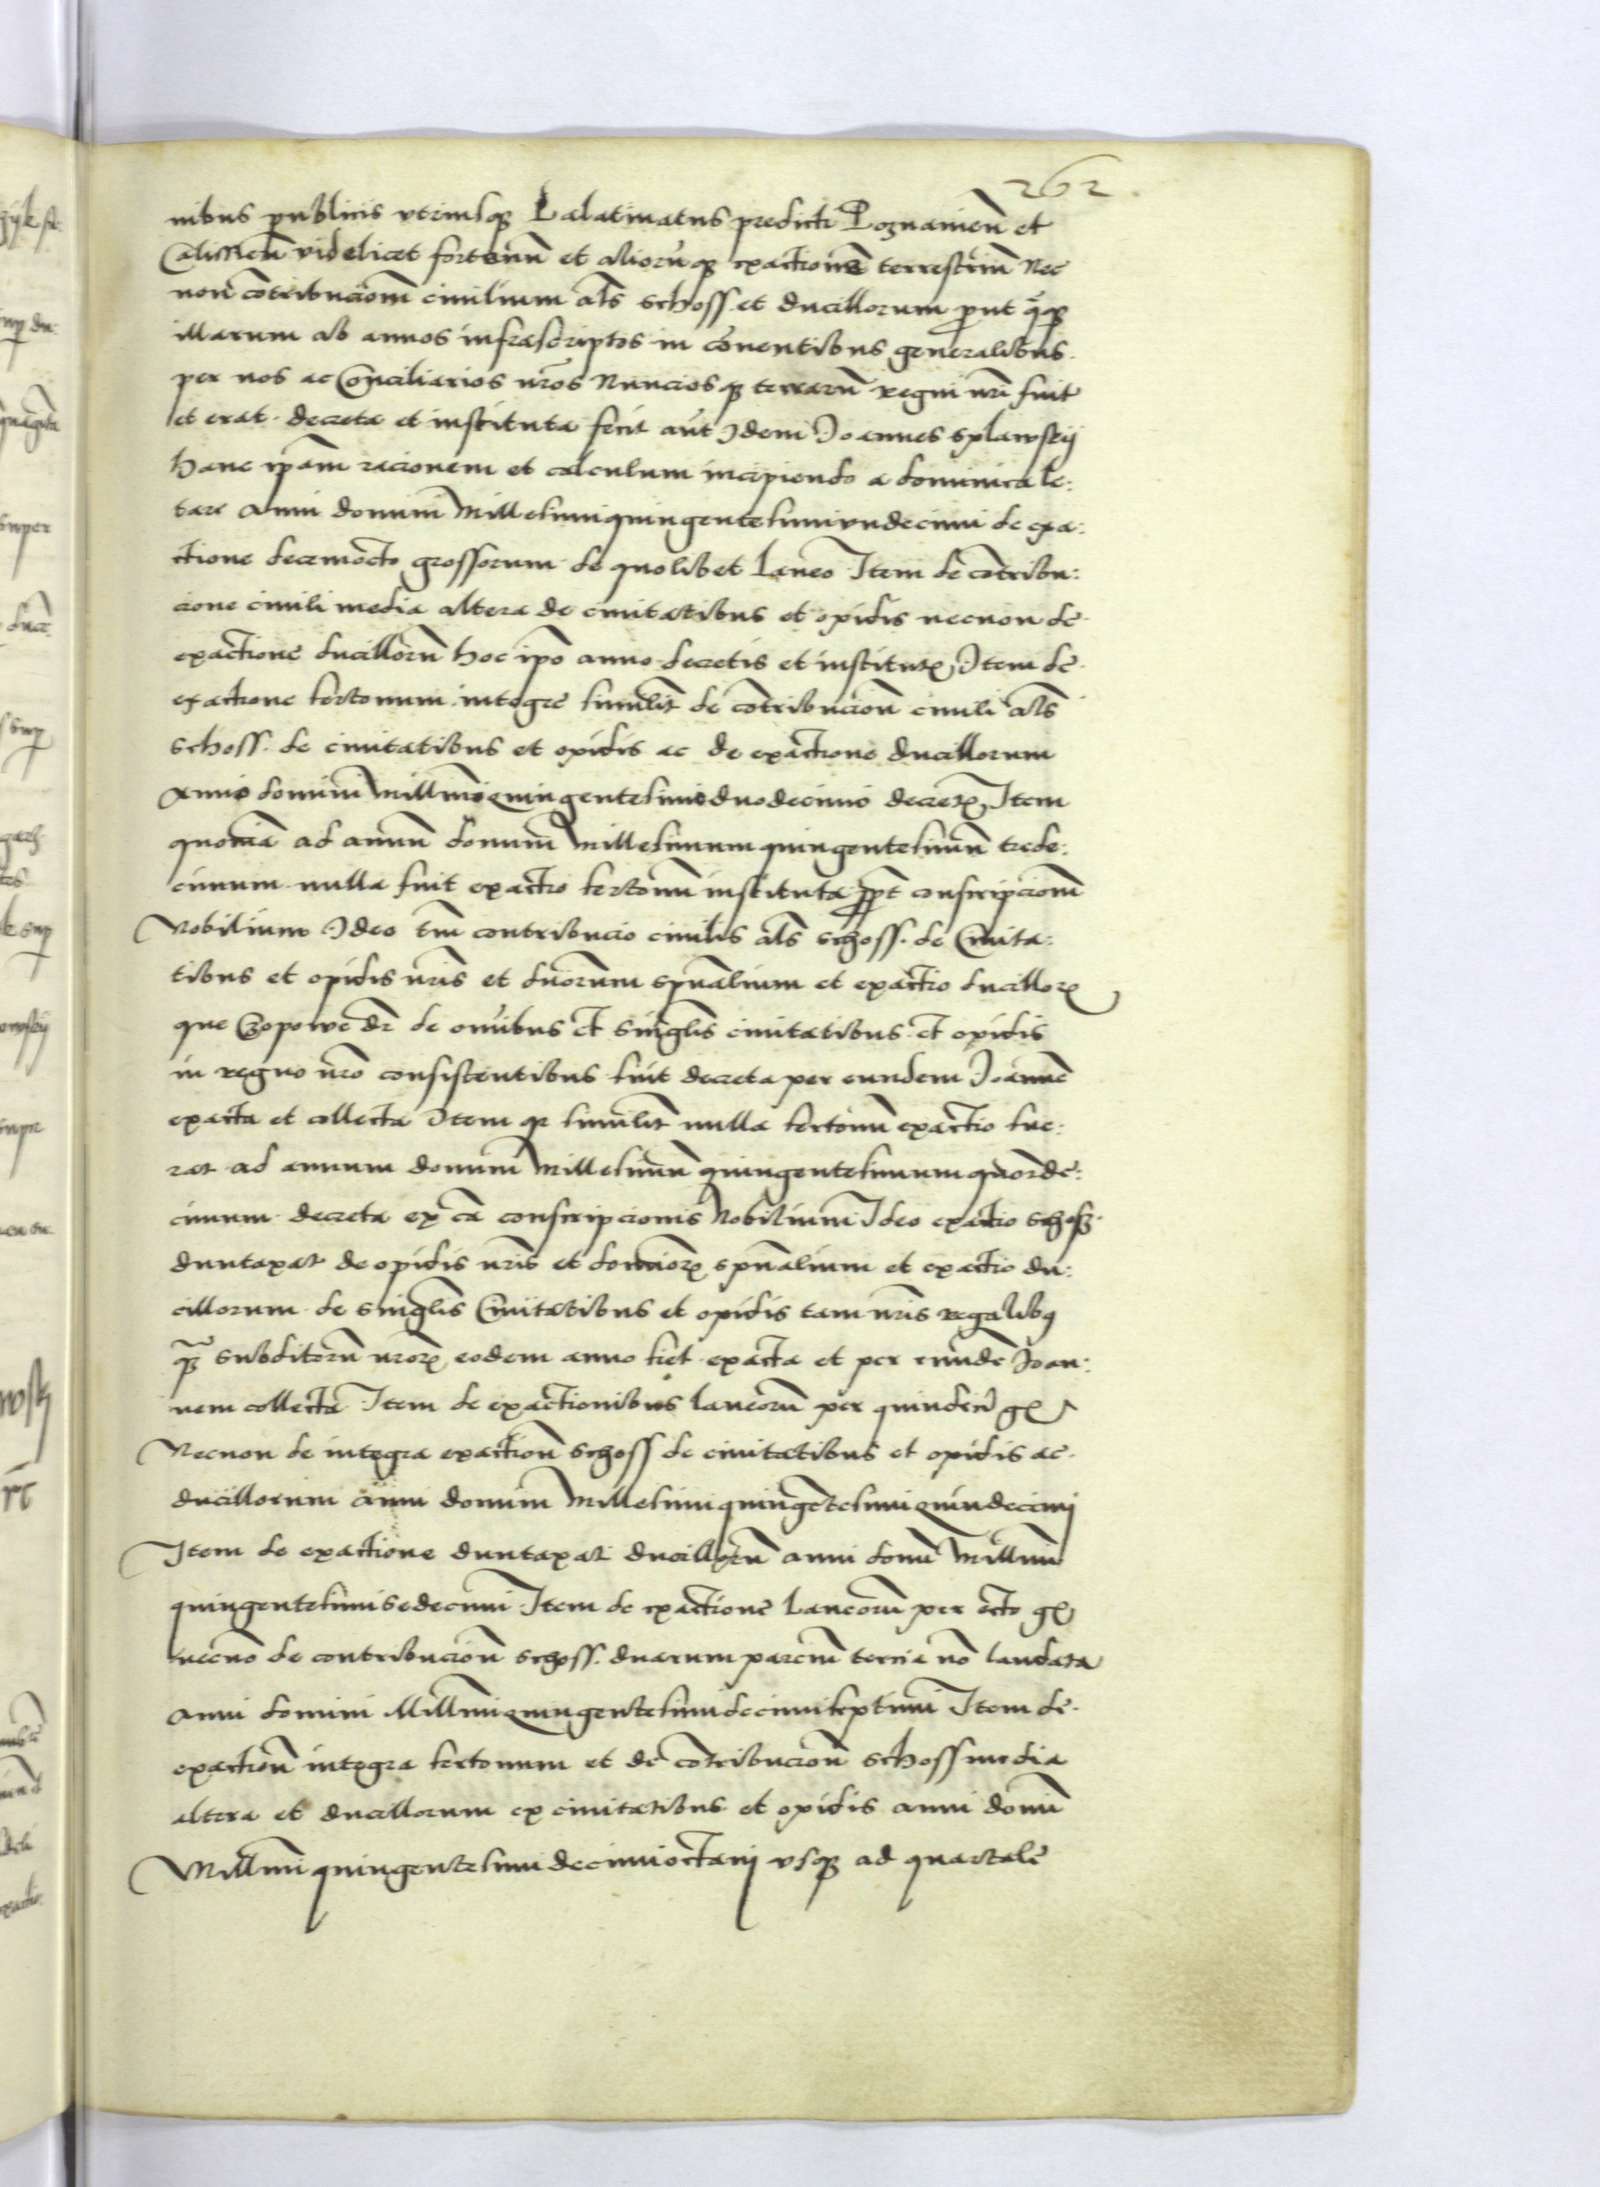 262
nibus publicis vtriusq Palatinatus predicti Poznanien et
Calissien videlicet fertonu et alioruq exactionu terrestrium Nec
non cotribucionu ciuilium als schoss et ducillorum prout
illarum ab annos infrascriptos in conentibus generalibus
per nos ac Consiliarios nros Nunciosq terraru regni nri fuit
et erat decreta et instituta fecit aut Idem Joannes Splawskij
hanc ipam racionem et calculum incipiendo a dominica le:
tare Anni domini Millesimiquingentesimivndecimi de exa:
ctione decemocto grossorum de quolibet Laneo Item de cotribu:
cione ciuili media altera de ciuitatibus et opidis necnon de
exactione ducilloru hoc ipo anno decretis et institut Item de
exactione fertonum integre similit de cotribucion ciuili als
schoss de ciuitatibus et opidis ac de exactione ducillorum
Anno domini Millimoquingentesimoduodecimo decret Item
quonia ad annu domini Millesimumquingentesimum trede:
cimum nulla fuit exactio fertonu instituta ppt conscripcionem
Nobilium Ideo tm contribucio ciuilis als schoss de Ciuita:
tibus et opidis nris et duorum spualium et exactio ducillor
que Czopowe dr de omibus et singlis ciuitatibus et opidis
in regno nro consistentibus fuit decreta per eundem Joanne
exacta et collecta Item q similit nulla fertonu exactio fue:
rat ad annum domini Millesimu quingentesimum quorde:
cimum decreta ex ca conscripcionis Nobilium Ideo exactio schoss
duntaxat de opidis nris et domior spualium et exactio du:
cillorum de singlis Ciuitatibus et opidis tam nris regalibq
q subditoru nror eodem anno fiet exacta et per eunde Joan:
nem collecta Item de exactionibus laneoru per quinden g
Necnon de integra exaction schoss de ciuitatibus et opidis ac
ducillorum anni domini Millesimiquingetesimiquindecimi
Item de exactione duntaxat ducilloru anni domi Millimi
quingentesimisedecimi Item de exactione Laneoru per octo g
necno de contribucion schoss duarum parciu tercia no laudata
anni domini Millimiquingentesimidecimiseptimi Item de
exaction integra fertonum et de cotribucion schoss media
altera et ducillorum ex ciuitatibus et opidis anni domi
Millimi quingentesimi decimioctaui vsq ad quartale